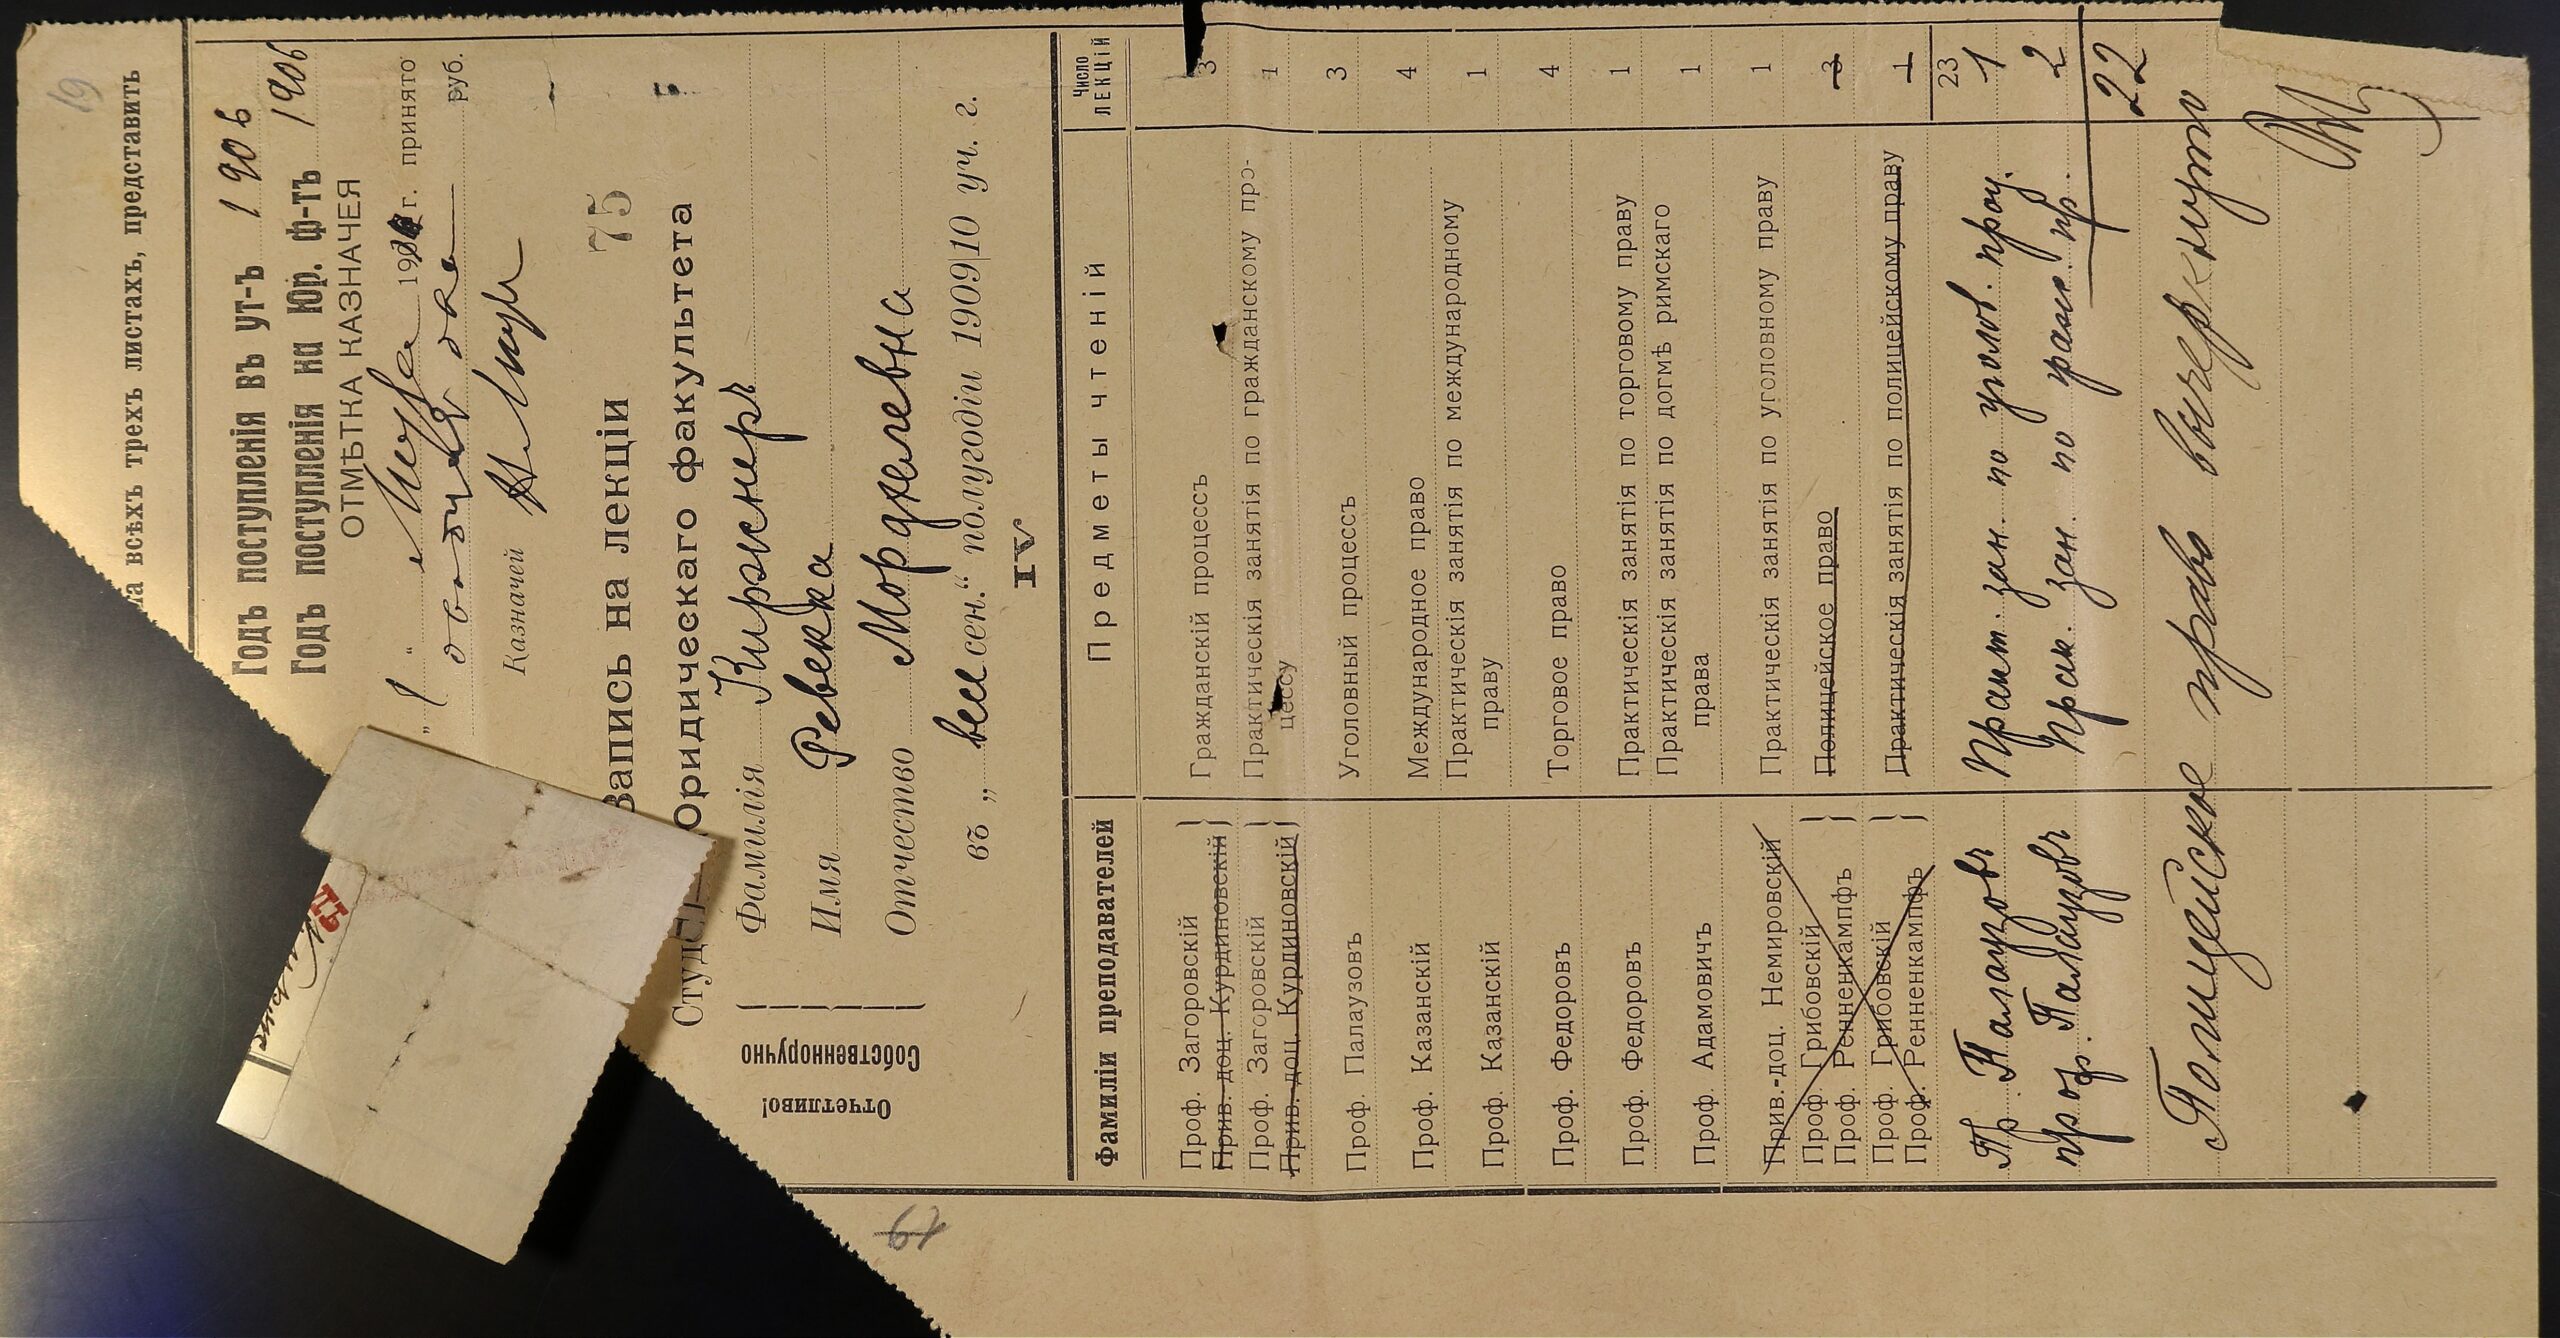 19
на всѣхъ трехъ листахъ, представить
Годъ поступленія въ ут-ъ 1906
Годъ поступленія на Юр. ф-тъ 1906
ОТМѢТКА КАЗНАЧЕЯ
„ 1 “ г. принято
руб.
Казначей
Запись на лекціи
75
Юридическаго факультета
Отчетливо!
Собственноручно
Фамилія Киржнеръ
Имя Ревекка
Отчество Мордхелевна
въ „весен.“ полугодіи 1909|10 уч. г.
IV
Фамиліи преподавателей Предметы чтеній Число лекцій
Проф. Загоровскій Гражданскій процессъ 3
Прив.-доц. Курдиновскій
Проф. Загоровскій Практическія занятія по гражданскому про- 1
Прив.-доц. Курдиновскій цессу
Проф. Палаузовъ Уголовный процессъ 3
Проф. Казанскій Международное право 4
Проф. Казанскій Практическія занятія по международному 1
праву
Проф. Федоровъ Торговое право 4
Проф. Федоровъ Практическія занятія по торговому праву 1
Проф. Адамовичъ Практическія занятія по догмѣ римскаго 1
права
Прив.-доц. Немировскій Практическія занятія по уголовному праву 1
Проф. Грибовскій Полицейское право 3
Проф. Ренненкампфъ
Проф. Грибовскій Практическія занятія по полицейскому праву 1
Проф. Ренненкампфъ
23
Пр. Палаузовъ Практ. зан. по уголов. проц. 1
проф. Палаузовъ Прак. зан. по пр. 2
22
Полицейское право вычеркнуто
67